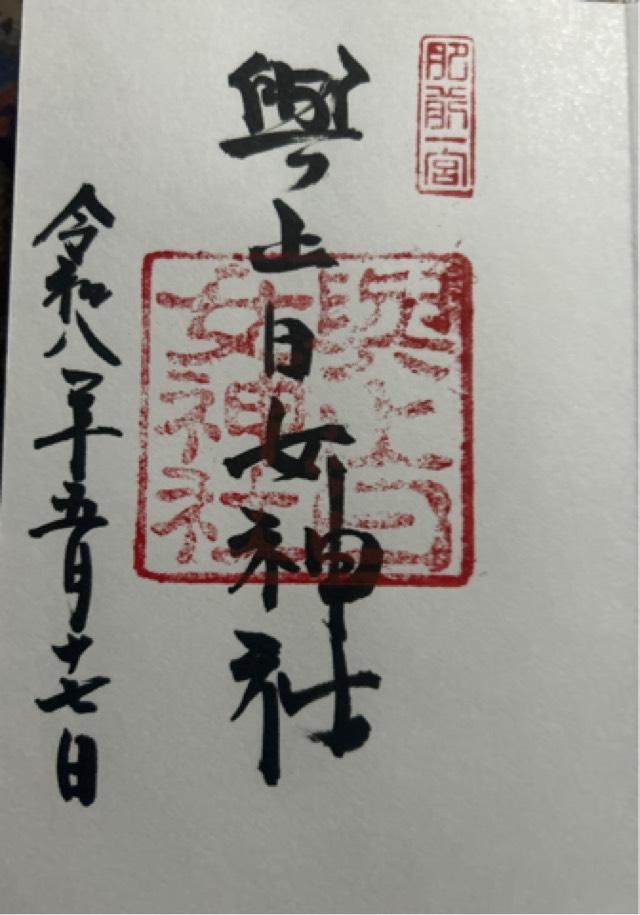 肥前一宮
與止日女神社
與止日女神社
令和八年五月十七日